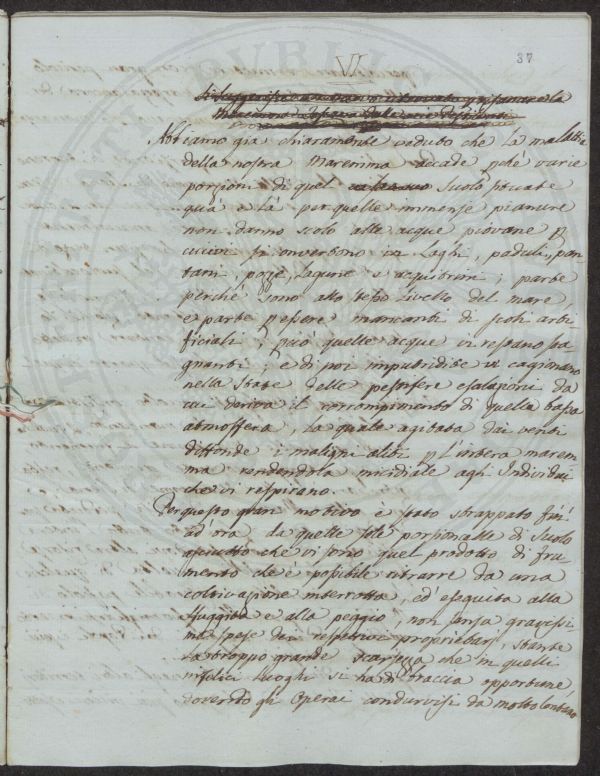 37
VI
Abbiamo già chiaramente veduto che la malattia
della nostra Maremma accade pché varie
porzioni di quel Suolo situate
quà e là per quelle immense pianure
non danno scolo alle acque piovane p
cui ivi si convertono in Laghi, paduli, pan-
tani, pozze, lagune e acquitrini; parte
perché sono allo stesso livello del mare,
e parte p essere mancanti di scoli arti-
ficiali; p ciò quelle acque vi restano sta-
gnanti; e di poi imputridite vi cagionano
nella State delle pestifere esalazioni da
cui deriva il corrompimento di quella bassa
atmosfera, la quale agitata dai venti
diffonde i maligni aliti p l'intera marem-
ma rendendola micidiale agli Individui
che vi respirano.
Per questo gran motivo è stato strappato fin
ad'ora da quelle sole porzioncelle di Suolo
asciutto che vi sono quel prodotto di fru-
mento che è possibile ritrarre da una
coltivazione interrotta, ed eseguita alla
sfuggita e alla peggio, non senza gravissi-
me spese dei respettivi proprietarj, stante
la troppo grande scarsezza che in quelli
infelici luoghi si ha di braccia opportune,
dovendo gli Operai condurvisi da molto lontano